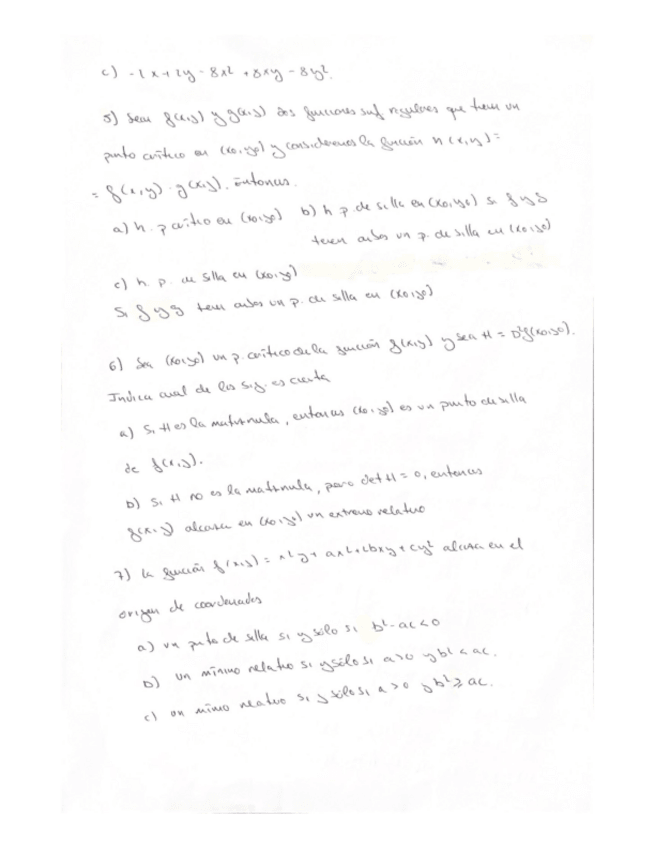 c) -2x+2y - 8x² + 8xy - 8y².
5) Sean f(x,y) y g(x,y) dos funciones suf regulares que tienen un
punto crítico en (x0,y0) y consideremos la función h(x,y)=
= f(x,y)·g(x,y). Entonces.
a) h. p crítico en (x0,y0) b) h p. de silla en (x0,y0) si f y g
tienen ambos un p. de silla en (x0,y0)
c) h. p. de silla en (x0,y0)
Si f y g tienen ambos un p. de silla en (x0,y0)
6) Sea (x0,y0) un p. crítico de la función f(x,y) y sea H = D²f(x0,y0).
Indica cual de las sig. es cierta
a) Si H es la matriz nula, entonces (x0,y0) es un punto de silla
de f(x,y).
b) Si H no es la matriz nula, pero det H = 0, entonces
f(x,y) alcanza en (x0,y0) un extremo relativo
7) La función f(x,y) = x²y + ax²+2bxy + cy² alcanza en el
origen de coordenadas
a) un punto de silla si y sólo si b²-ac<0
b) un mínimo relativo si y sólo si a>0 y b²<ac.
c) un mínimo relativo si y sólo si a>0 y b²≥ac.